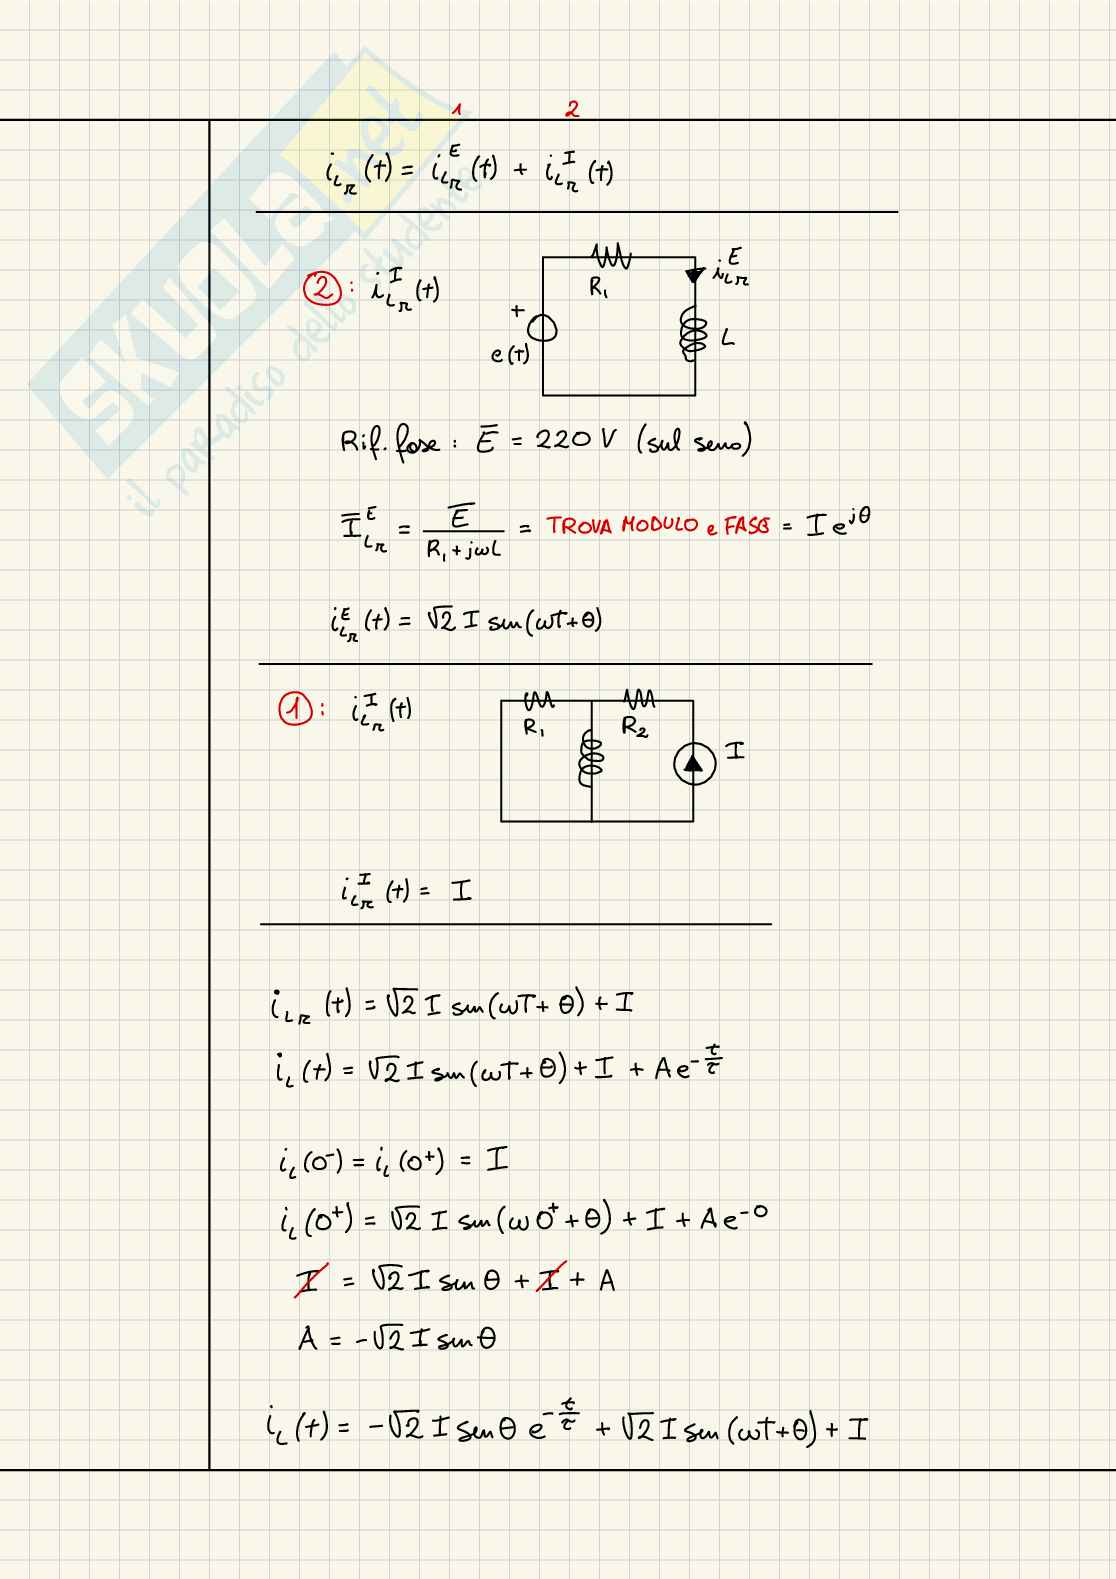 SKUOLA.net
il paradiso dello studente
1 2
i_{L_R}(t) = i_{L_R}^E(t) + i_{L_R}^I(t)
②: i_{L_R}^I(t)
R₁
i_{L_R}^E
+
e(t)
L
Rif. fase: E̅ = 220 V (sul seno)
I̅_{L_R}^E = E̅ / (R₁ + jωL) = TROVA MODULO e FASE = I e^{jθ}
i_{L_R}^E(t) = √2 I sen(ωT+θ)
①: i_{L_R}^I(t)
R₁
R₂
I
i_{L_R}^I(t) = I
i_{L_R}(t) = √2 I sen(ωT+θ) + I
i_L(t) = √2 I sen(ωT+θ) + I + A e^{-t/τ}
i_L(0⁻) = i_L(0⁺) = I
i_L(0⁺) = √2 I sen(ω0⁺+θ) + I + A e^{-0}
I = √2 I sen θ + I + A
A = -√2 I sen θ
i_L(t) = -√2 I sen θ e^{-t/τ} + √2 I sen(ωT+θ) + I